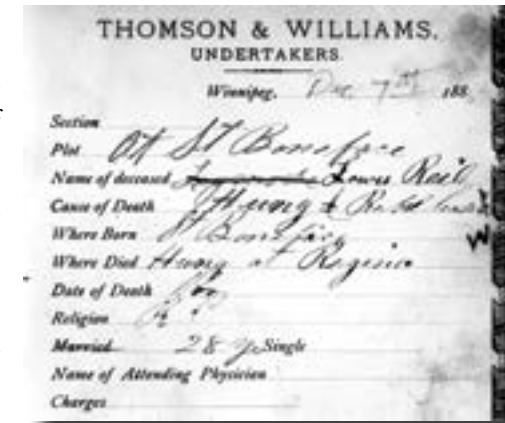 THOMSON & WILLIAMS,
UNDERTAKERS.
Winnipeg, Dec 7th 188
Section
Plot At St Boniface
Name of deceased Lowis Reil
Cause of Death Hung
Where Born St Boniface
Where Died Hung at Regina
Date of Death
Religion
Married 28 y Single
Name of Attending Physician
Charges